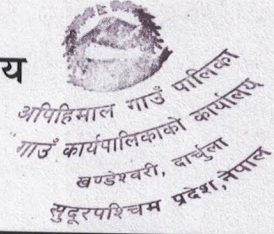 य
अपिहिमाल गाउँ पालिका
गाउँ कार्यपालिकाको कार्यालय
खण्डेश्वरी, दार्चुला
सुदूरपश्चिम प्रदेश, नेपाल